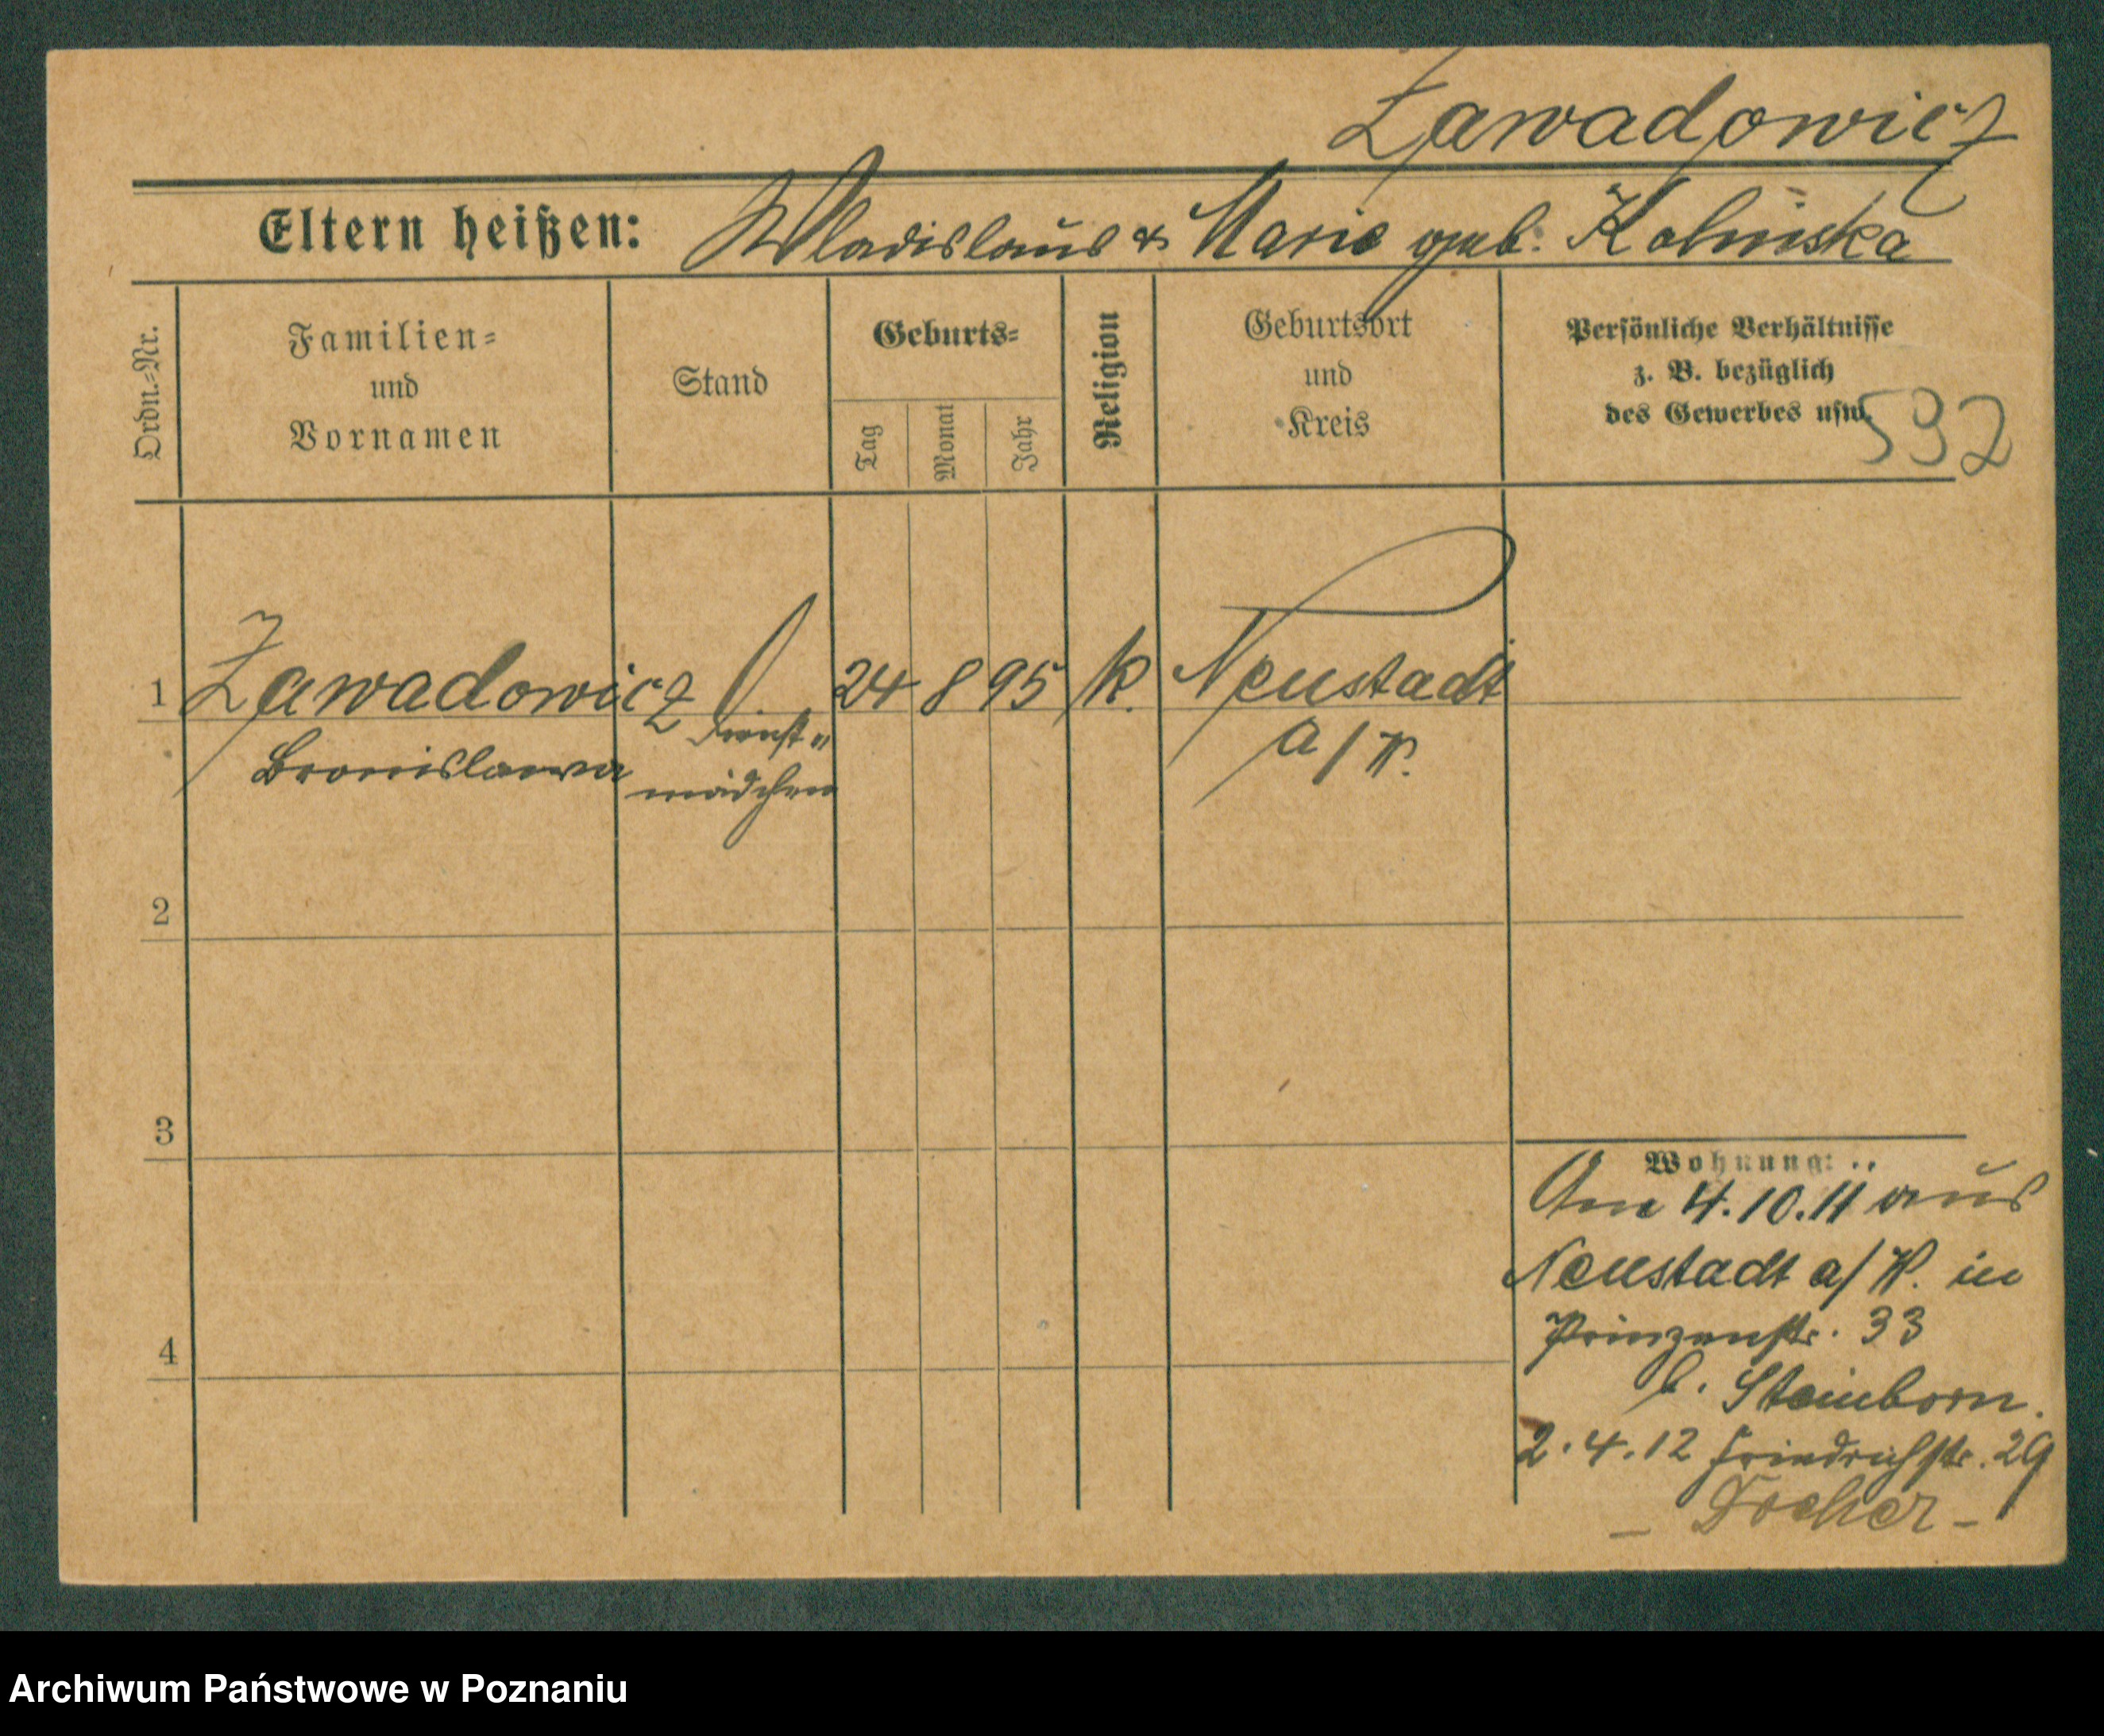 Zawadowicz
Eltern heißen: Wladislaus & Marie geb. Kolińska
Ordn.=Nr.
Familien=
und
Vornamen
Stand
Geburts=
Tag
Monat
Jahr
Religion
Geburtsort
und
Kreis
Persönliche Verhältnisse
z. B. bezüglich
des Gewerbes usw.
592
1 Zawadowicz 24 8 95 k. Neustadt
Bronislawa Dienst=
mädchen
a/W.
2
3
4
Wohnung:
Am 4.10.11 aus
Neustadt a/W. in
Prinzenstr. 33
b. Steinborn.
2.4.12 Friedrichstr. 29
Archiwum Państwowe w Poznaniu